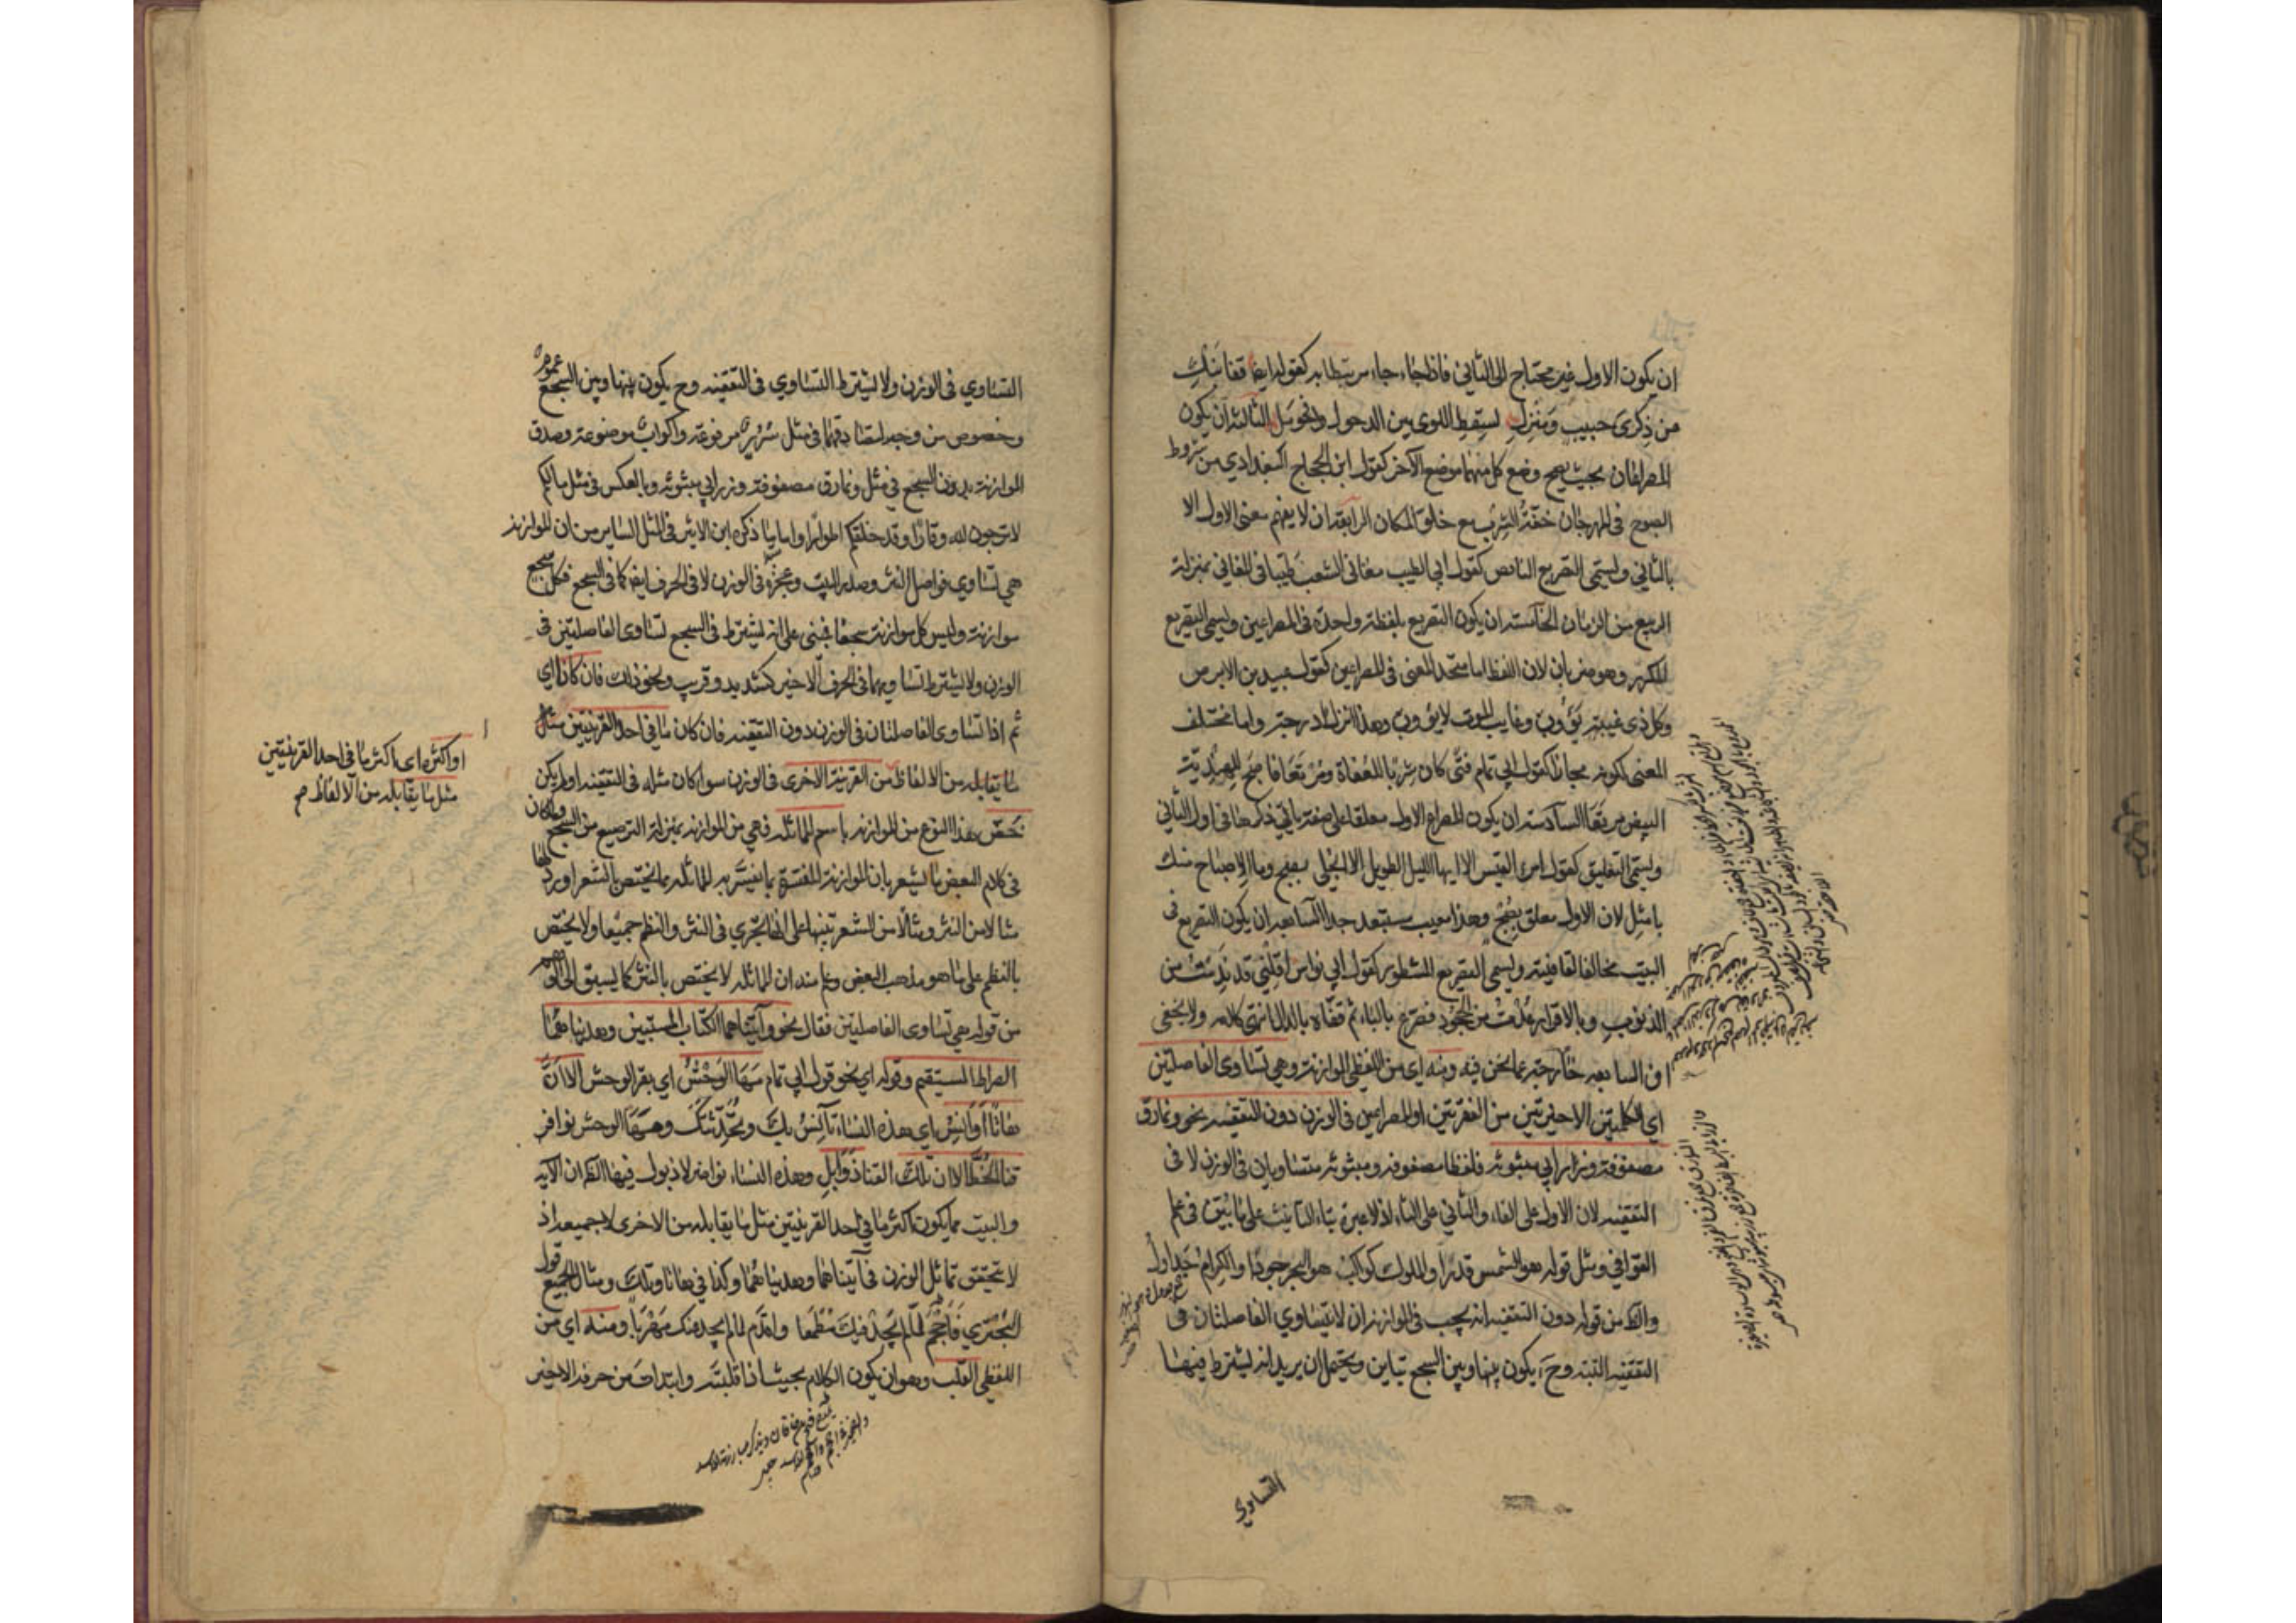 ان يكون الاول غير محتاج الى الثاني فاذا جاء جاء مرتبطا به كقوله ايضا قفا نبك
من ذكرى حبيب ومنزل بسقط اللوى بين الدخول وحومل الثالثة ان يكون
المصراعان بحيث يصح وضع كل منهما موضع الآخر كقول ابن الحجاج البغدادي من شروط
الصبوح في المهرجان خفة الشرب مع خلو المكان الرابعة ان لا يفهم معنى الاول الا
بالثاني ويسمى التصريع الناقص كقول ابي الطيب مغاني الشعب طيبا في المغاني بمنزلة
الربيع من الزمان الخامسة ان يكون التصريع بلفظة واحدة في المصراعين ويسمى التصريع
المكرر وهو ضربان لان اللفظ اما متحد المعنى في المصراعين كقول عبيد بن الابرص
وكل ذي غيبة يؤوب وغايب الموت لا يؤوب وهذا انزل درجة واما مختلف
المعنى لكونه مجازا كقول ابي تمام فتى كان شربا للعفاة ومرتعا فاصبح للهندية
البيض مرتعا السادسة ان يكون المصراع الاول معلقا على صفة ياتي ذكرها في اول الثاني
ويسمى التعليق كقول امرئ القيس الا ايها الليل الطويل الا انجلي بصبح وما الاصباح منك
بامثل لان الاول معلق بصبح وهذا معيب مستبعد جدا السابعة ان يكون التصريع في
البيت مخالفا لقافيته ويسمى التصريع المشطور كقول ابي نواس اقلني قد ندمت من
الذنوب وبالاقرار عذت من الجحود فصرع بالباء ثم قفاه بالدال انتهى كلامه ولا يخفى
ان السابعة خارجة عما نحن فيه ومنه اي من اللفظي الموازنة وهي تساوي الفاصلتين
اي الكلمتين الاخيرتين من الفقرتين او المصراعين في الوزن دون التقفية نحو ونمارق
مصفوفة وزرابي مبثوثة فلفظا مصفوفة ومبثوثة متساويان في الوزن لا في
التقفية لان الاول على الفاء والثاني على الثاء اذ لا عبرة بتاء التانيث على ما بين في علم
القوافي ومثل قوله هو الشمس قدرا والملوك كواكب هو البحر جودا والكرام جداول
والظ من قوله دون التقفية انه يجب في الموازنة ان لا يتساوي الفاصلتان في
التقفية البتة وح يكون بينها وبين السجع تباين ويحتمل ان يريد انه يشترط فيها
التساوي
التساوي في الوزن ولا يشترط التساوي في التقفية وح يكون بينها وبين السجع عموم
وخصوص من وجه لتصادقهما في مثل سرر مرفوعة واكواب موضوعة وصدق
الموازنة بدون السجع في مثل ونمارق مصفوفة وزرابي مبثوثة وبالعكس في مثل ما لكم
لا ترجون لله وقارا وقد خلقكم اطوارا واما ما ذكره ابن الاثير في المثل الساير من ان الموازنة
هي تساوي فواصل النثر وصدر البيت وعجزه في الوزن لا في الحرف ايضا كما في السجع فكل سجع
موازنة وليس كل موازنة سجعا فمبنى على انه يشترط في السجع تساوي الفاصلتين في
الوزن ولا يشترط تساويهما في الحرف الاخير كشديد وقريب ونحو ذلك فان كان اي
ثم اذا تساوى الفاصلتان في الوزن دون التقفية فان كان ما في احد القرينتين مثل
ما يقابله من الالفاظ من القرينة الاخرى في الوزن سوا كان مثله في التقفية او لم يكن
خص هذا النوع من الموازنة باسم المماثلة فهي من الموازنة بمنزلة الترصيع من السجع ولما كان
في كلام البعض ما يشعر بان الموازنة المفسرة بما يفسر به المماثلة مما يختص بالشعر اورد لها
مثالا من النثر ومثالا من الشعر تنبيها على انها تجري في النثر والنظم جميعا ولا يختص
بالنظم على ما هو مذهب البعض وعلم منه ان المماثلة لا يختص بالنثر كما يسبق الى الوهم
من قوله هي تساوي الفاصلتين فقال نحو وآتيناهما الكتاب المستبين وهديناهما
الصراط المستقيم وقوله اي نحو قول ابي تمام مها الوحش اي بقر الوحش الا ان
هاتا اوانس اي هذه النساء تآنس بك وتحدثك ومها الوحش نوافر
قنا الخط الا ان تلك القنا ذوابل وهذه النساء نواضر لا ذبول فيها الظ ان الآية
والبيت مما يكون اكثر ما في احد القرينتين مثل ما يقابله من الاخرى لا جميعه اذ
لا يتحقق تماثل الوزن في آتيناهما وهديناهما وكذا في هاتا وتلك ومثال الجميع قول
البحتري فاحجم لما لم يجد فيك مطمعا واقدم لما لم يجد عنك مهربا ومنه اي من
اللفظي القلب وهو ان يكون الكلام بحيث اذا قلبته وابتدات من حرفه الاخير
او اكثره اي اكثر ما في احد القرينتين
مثل ما يقابله من الالفاظ صح